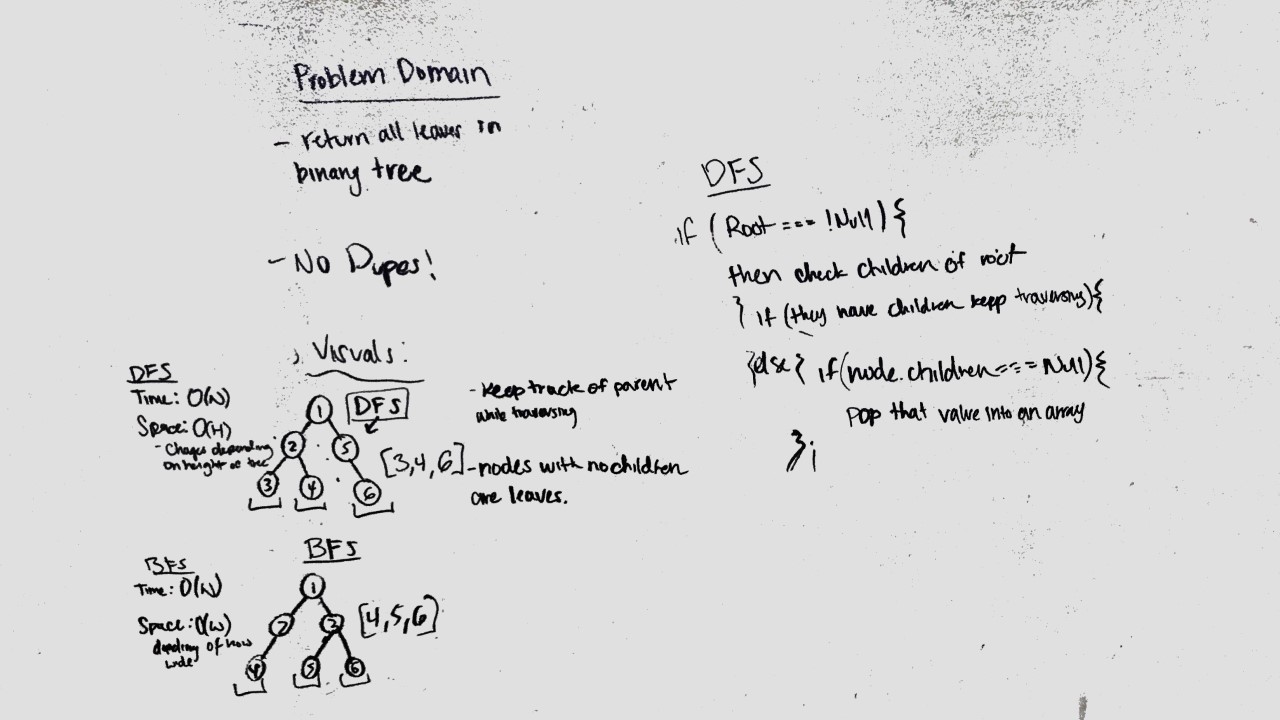 Problem Domain
- return all leaves in
binary tree
- No Dupes!
Visuals:
DFS
Time: O(N)
Space: O(H)
- Chages depending
on height of tree
DFS
1
2 5
3 4 6
[3,4,6]
- keep track of parent
while traversing
- nodes with no children
are leaves.
BFS
BFS
Time: O(N)
Space: O(W)
depending of how
wide
1
2 2
4 5 6
[4,5,6]
DFS
if (Root === !Null) {
then check children of root
} if (they have children keep traversing) {
}else{ if(node.children === Null){
Pop that value into an array
};